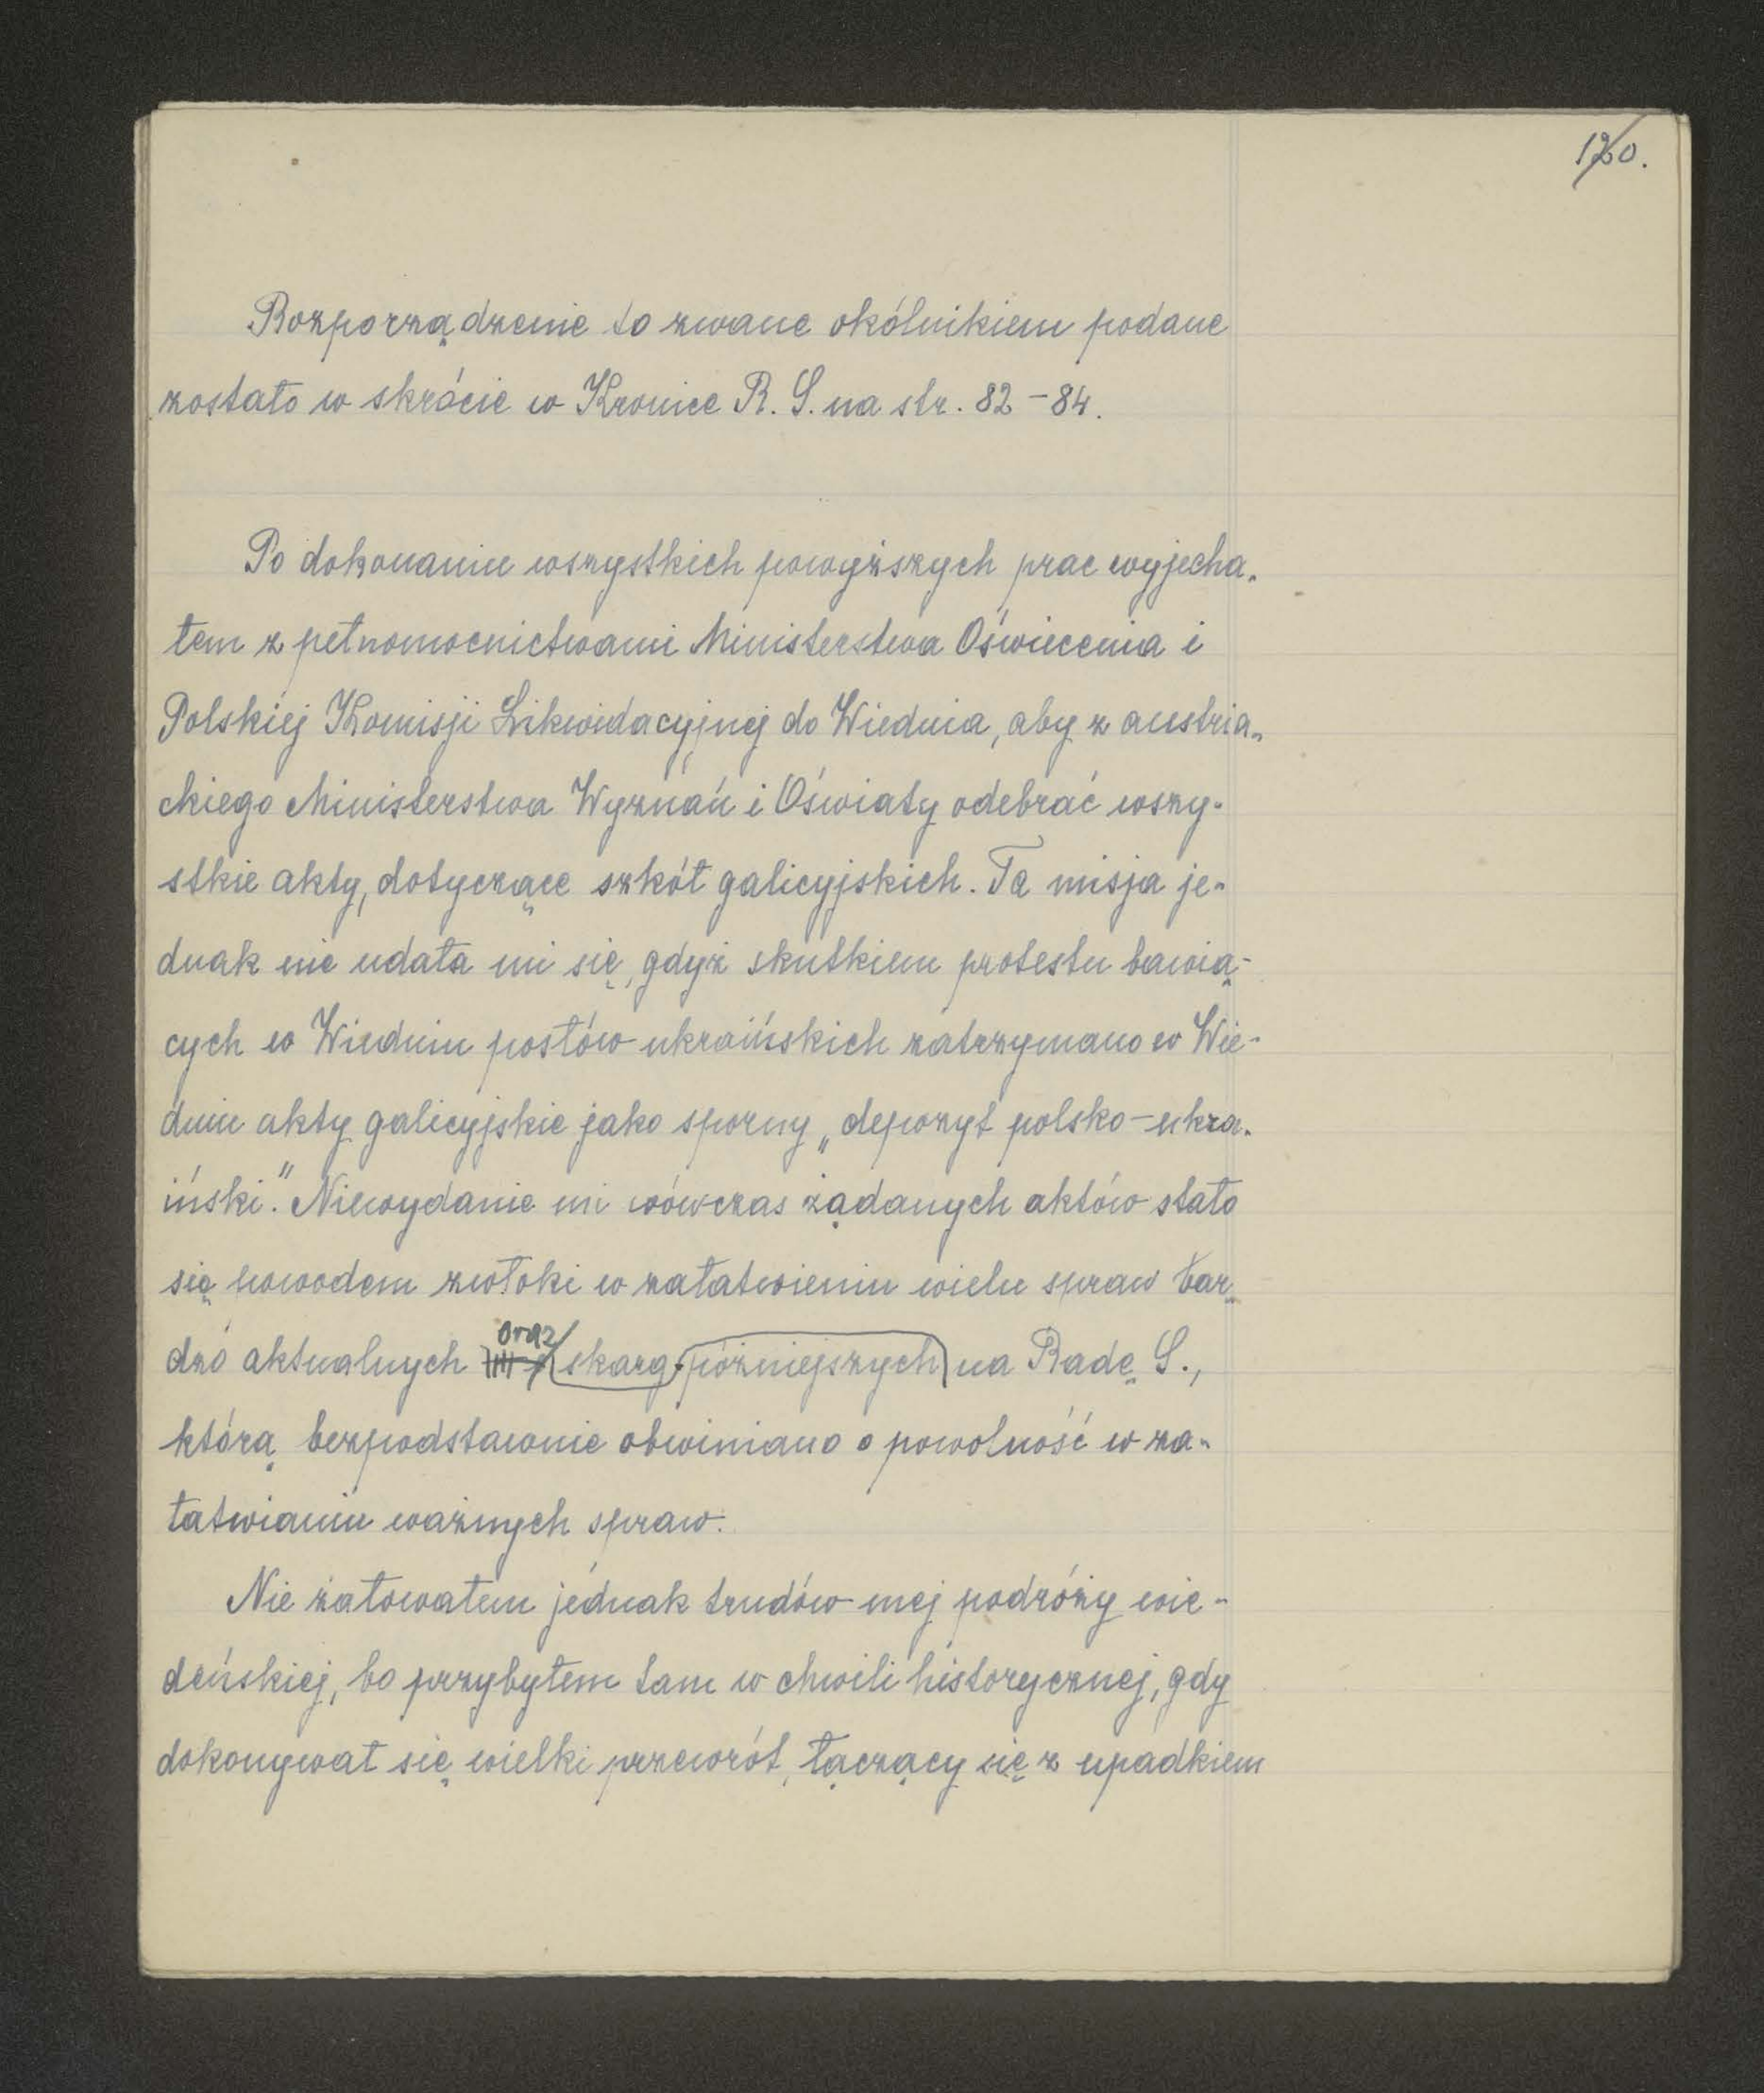 120.
Rozporządzenie to zwane okólnikiem podane
zostało w skrócie w Kronice R. S. na str. 82-84.
Po dokonaniu wszystkich powyższych prac wyjecha-
łem z pełnomocnictwami Ministerstwa Oświecenia i
Polskiej Komisji Likwidacyjnej do Wiednia, aby z austria-
ckiego Ministerstwa Wyznań i Oświaty odebrać wszy-
stkie akty, dotyczące szkół galicyjskich. Ta misja je-
dnak nie udała mi się, gdyż skutkiem protestu bawią-
cych w Wiedniu posłów ukraińskich zatrzymano w Wie-
dniu akty galicyjskie jako sporny „depozyt polsko-ukra-
iński." Niewydanie mi wówczas żądanych aktów stało
się powodem zwłoki w załatwieniu wielu spraw bar-
dzo aktualnych oraz skarg późniejszych na Radę S.,
którą bezpodstawnie obwiniano o powolność w za-
łatwianiu ważnych spraw.
Nie żałowałem jednak trudów mej podróży wie-
deńskiej, bo przybyłem tam w chwili historycznej, gdy
dokonywał się wielki przewrót, łączący się z upadkiem